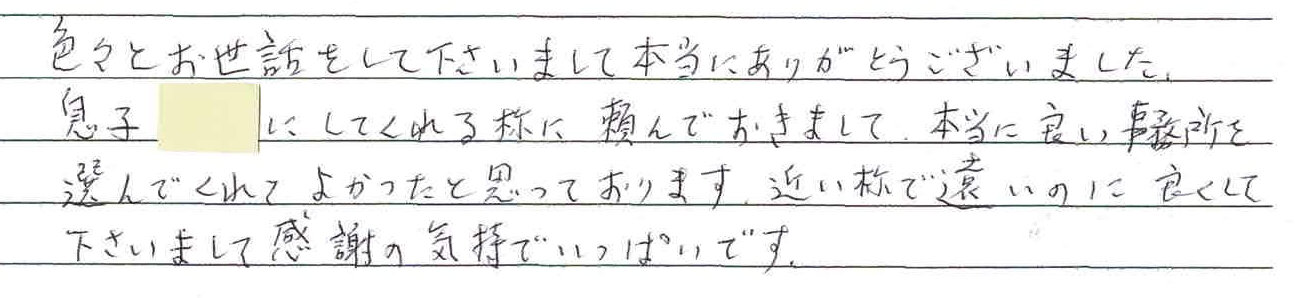 色々とお世話をして下さいまして本当にありがとうございました。
息子 にしてくれる様に頼んでおきまして、本当に良い事務所を
選んでくれてよかったと思っております。近い様で遠いのに良くして
下さいまして感謝の気持でいっぱいです。